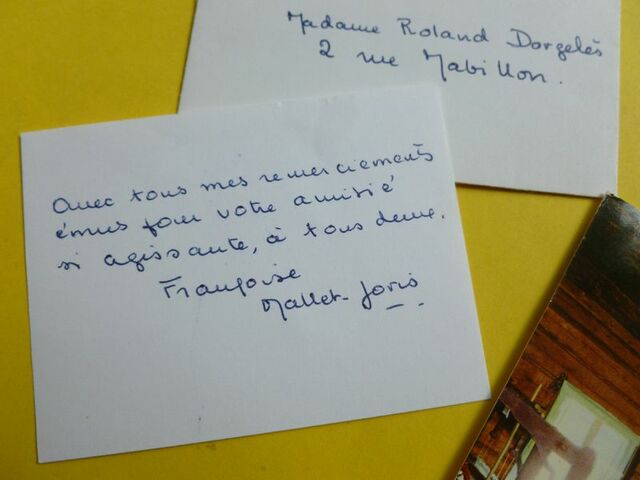 Madame Roland Dorgelès
2 rue Mabillon.
Avec tous mes remerciements
émus pour votre amitié
si agissante, à tous deux.
Françoise
Mallet-Joris